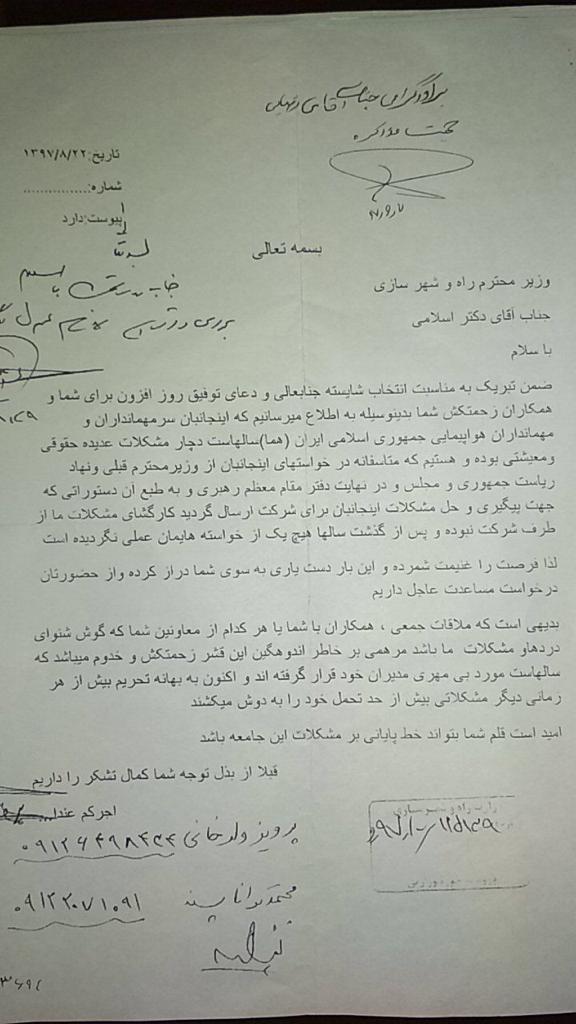 برادر گرامی جناب آقای
جهت مذاکره
تاریخ:۱۳۹۷/۸/۲۲
شماره:................
پیوست:دارد
بسمه تعالی
وزیر محترم راه و شهر سازی
جناب آقای دکتر اسلامی
با سلام
ضمن تبریک به مناسبت انتخاب شایسته جنابعالی و دعای توفیق روز افزون برای شما و
همکاران زحمتکش شما بدینوسیله به اطلاع میرسانیم که اینجانبان سرمهمانداران و
مهمانداران هواپیمایی جمهوری اسلامی ایران (هما)سالهاست دچار مشکلات عدیده حقوقی
ومعیشتی بوده و هستیم که متاسفانه در خواستهای اینجانبان از وزیرمحترم قبلی ونهاد
ریاست جمهوری و مجلس و در نهایت دفتر مقام معظم رهبری و به طبع آن دستوراتی که
جهت پیگیری و حل مشکلات اینجانبان برای شرکت ارسال گردید کارگشای مشکلات ما از
طرف شرکت نبوده و پس از گذشت سالها هیچ یک از خواسته هایمان عملی نگردیده است
لذا فرصت را غنیمت شمرده و این بار دست یاری به سوی شما دراز کرده واز حضورتان
درخواست مساعدت عاجل داریم
بدیهی است که ملاقات جمعی ، همکاران با شما یا هر کدام از معاونین شما که گوش شنوای
دردهاو مشکلات ما باشد مرهمی بر خاطر اندوهگین این قشر زحمتکش و خدوم میباشد که
سالهاست مورد بی مهری مدیران خود قرار گرفته اند و اکنون به بهانه تحریم بیش از هر
زمانی دیگر مشکلاتی بیش از حد تحمل خود را به دوش میکشند
امید است قلم شما بتواند خط پایانی بر مشکلات این جامعه باشد
قبلا از بذل توجه شما کمال تشکر را داریم
اجرکم عندا...
پرویز ولدخانی ۰۹۱۲۶۴۹۸۴۴۴
۰۹۱۲۲۰۷۱۰۹۱